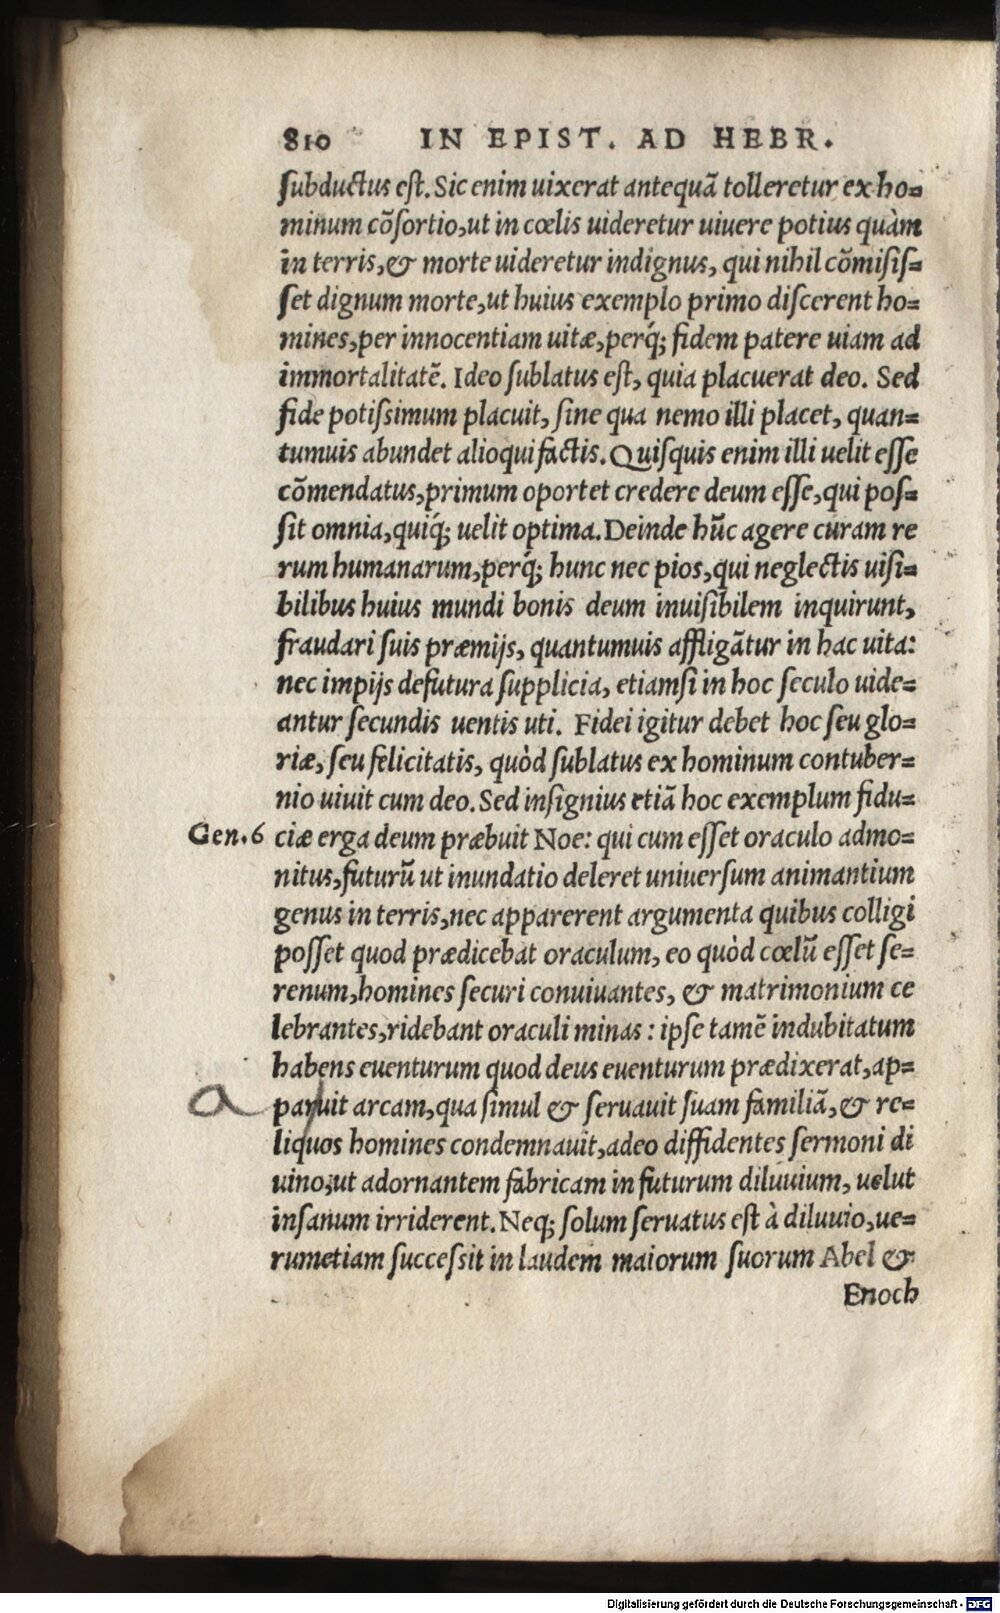 810 IN EPIST. AD HEBR.
subductus est. Sic enim uixerat antequã tolleretur ex ho=
minum cõsortio, ut in cœlis uideretur uiuere potius quàm
in terris, & morte uideretur indignus, qui nihil cõmisis=
set dignum morte, ut huius exemplo primo discerent ho=
mines, per innocentiam uitæ, perq́; fidem patere uiam ad
immortalitatẽ. Ideo sublatus est, quia placuerat deo. Sed
fide potissimum placuit, sine qua nemo illi placet, quan=
tumuis abundet alioqui factis. Quisquis enim illi uelit esse
cõmendatus, primum oportet credere deum esse, qui pos=
sit omnia, quiq́; uelit optima. Deinde hũc agere curam re
rum humanarum, perq́; hunc nec pios, qui neglectis uisi=
bilibus huius mundi bonis deum inuisibilem inquirunt,
fraudari suis præmijs, quantumuis affligãtur in hac uita:
nec impijs defutura supplicia, etiamsi in hoc seculo uide=
antur secundis uentis uti. Fidei igitur debet hoc seu glo=
riæ, seu felicitatis, quòd sublatus ex hominum contuber=
nio uiuit cum deo. Sed insignius etiã hoc exemplum fidu=
Gen. 6 ciæ erga deum præbuit Noe: qui cum esset oraculo admo=
nitus, futurũ ut inundatio deleret uniuersum animantium
genus in terris, nec apparerent argumenta quibus colligi
posset quod prædicebat oraculum, eo quòd cœlũ esset se=
renum, homines securi conuiuantes, & matrimonium ce
lebrantes, ridebant oraculi minas : ipse tamẽ indubitatum
habens euenturum quod deus euenturum prædixerat, ap=
a paruit arcam, qua simul & seruauit suam familiã, & re=
liquos homines condemnauit, adeo diffidentes sermoni di
uino, ut adornantem fabricam in futurum diluuium, uelut
insanum irriderent. Neq; solum seruatus est à diluuio, ue=
rumetiam successit in laudem maiorum suorum Abel &
Enoch
Digitalisierung gefördert durch die Deutsche Forschungsgemeinschaft - DFG